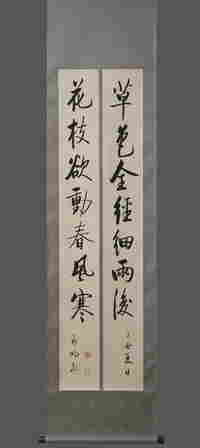 草色全經細雨
夏日
花枝欲動春風寒